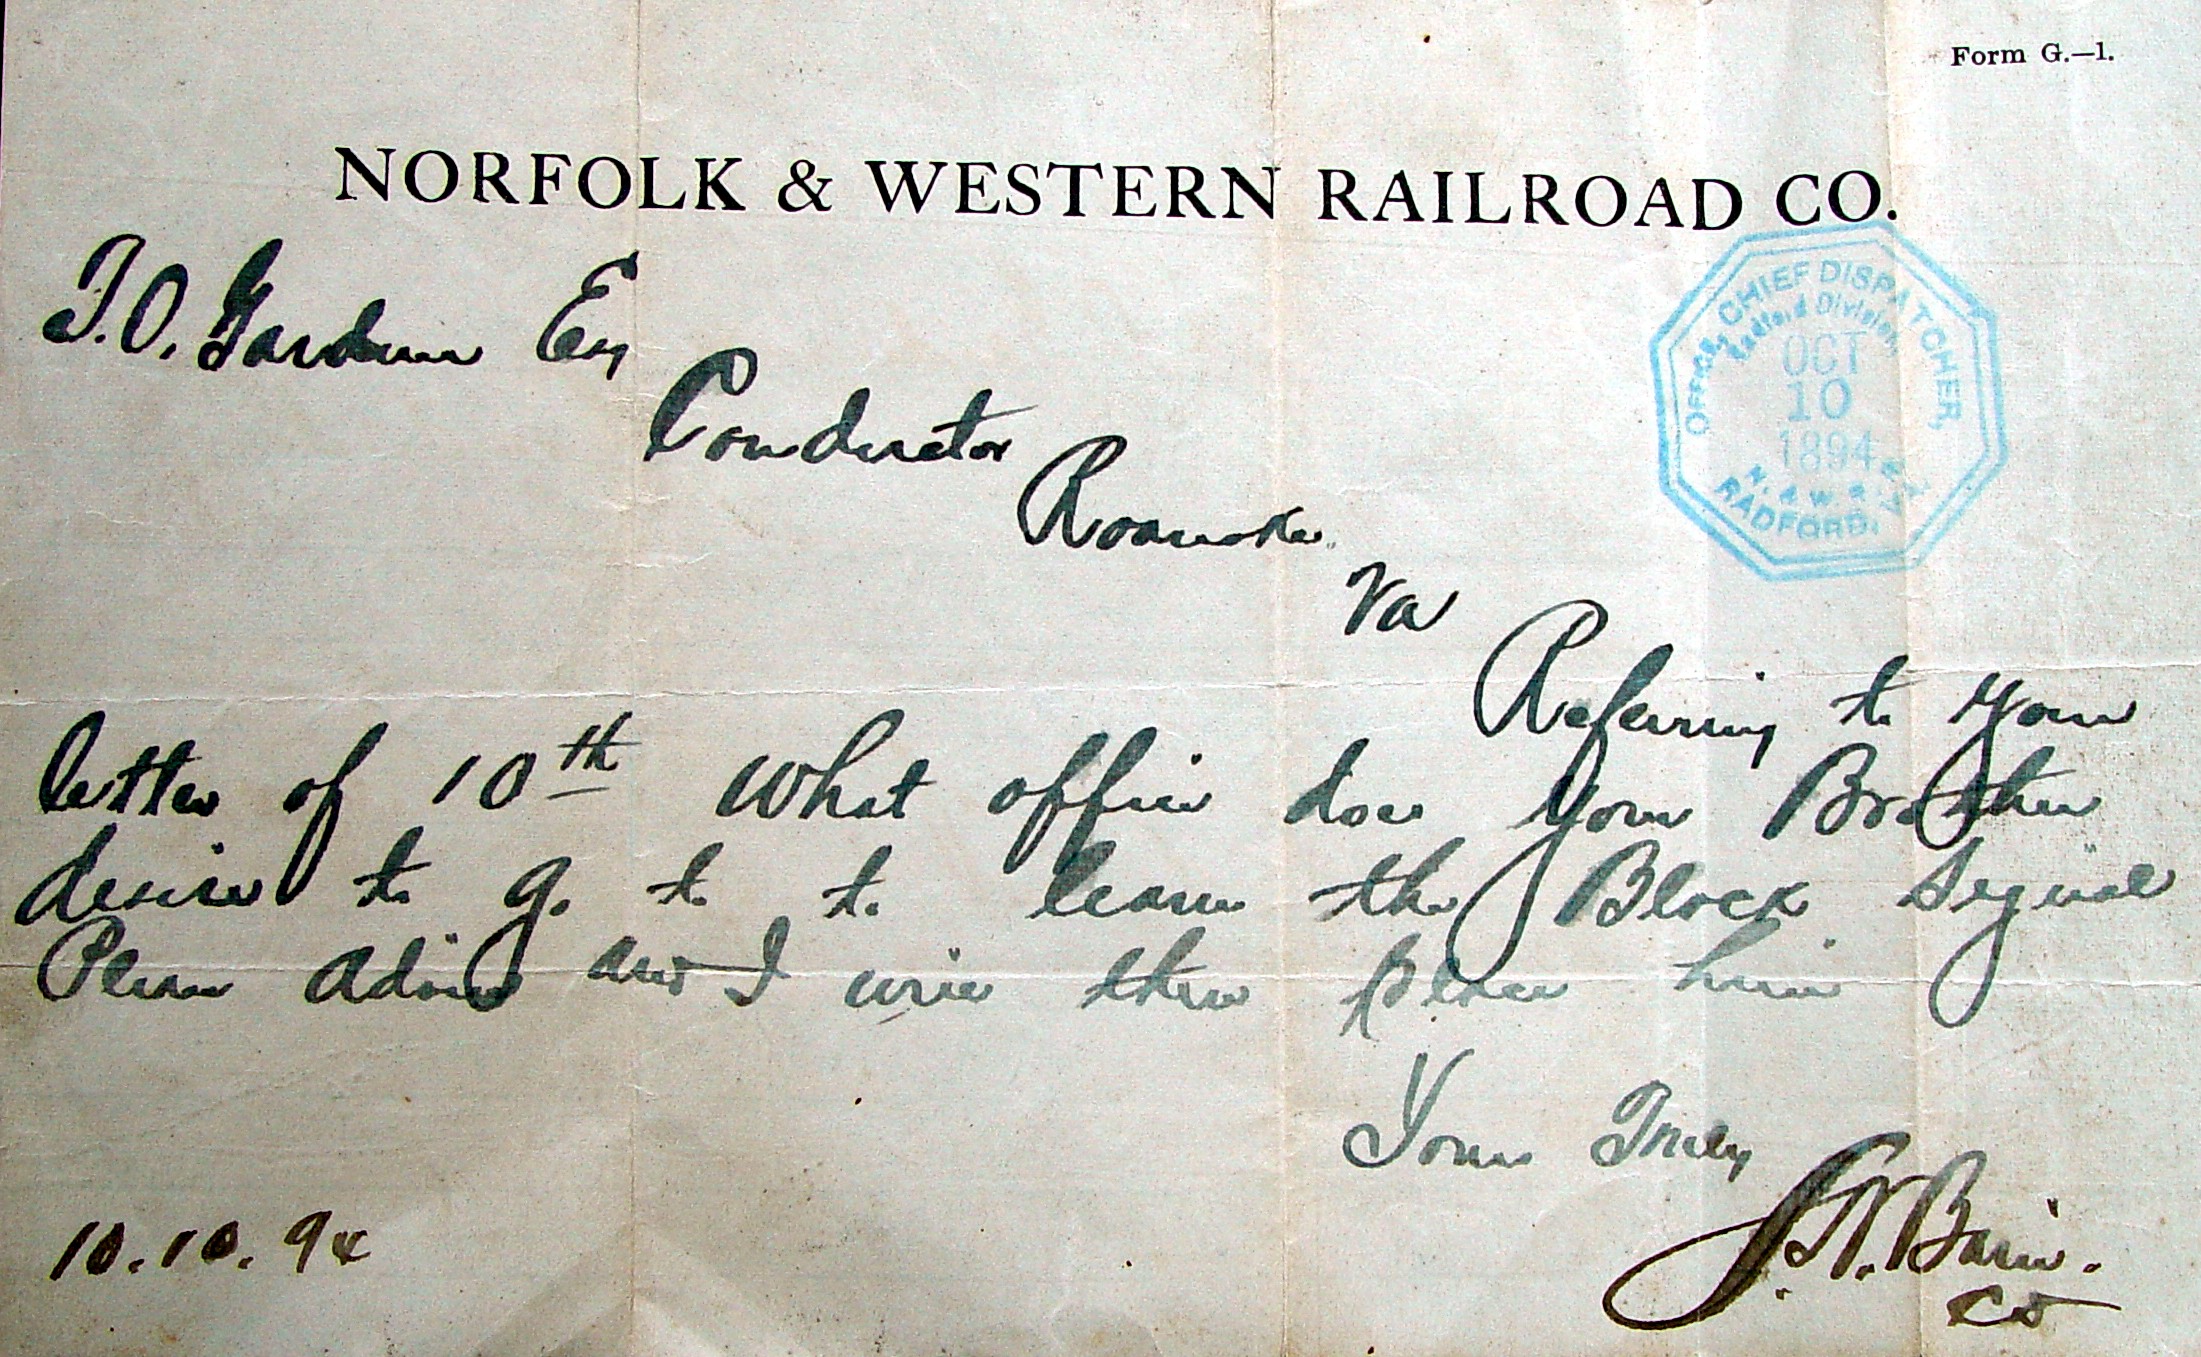 Form G.—1.
NORFOLK & WESTERN RAILROAD CO.
OFFICE, CHIEF DISPATCHER,
Radford Division
OCT
10
1894
N. & W. R. R.
RADFORD, VA.
T.O. Esq
Conductor
Roanoke
Va
Referring to your
letter of 10th What office does your Brother
desire to go to to learn the Block Signal
Please advise and I will then place him
Yours Truly
10.10.94